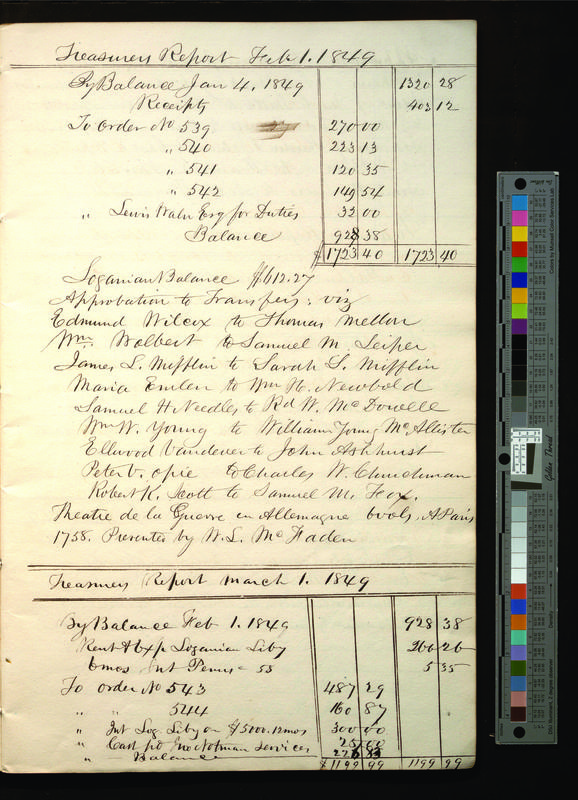 Treasurers Report Feb 1. 1849
By Balance Jan 4. 1849 1320 28
Receipts 403 12
To Order No 539 270 00
" 540 223 13
" 541 120 35
" 542 149 54
" Lewis Waln Esq for Duties 32 00
Balance 928 38
$ 1723 40 1723 40
Loganian Balance $612.27
Approbation to Transfers: viz
Edmund Wilcox to Thomas Mellon
Wm. Wolbert to Samuel M. Leiper
James L. Mifflin to Sarah L. Mifflin
Maria Emlen to Wm H. Newbold
Samuel H Needles to Rd W. McDowelle
Wm W. Young to William Young McAlister
Ellwood Vandever to John Ashhurst
Peter V. Opie to Charles W. Churchman
Robert K. Scott to Samuel M. Fox.
Theatre de la Guerre en Allemagne 6 vols. A Paris
1758. Presented by W. L. McFaden
Treasurers Report March 1. 1849
By Balance Feb 1. 1849 928 38
Rent & Exp Loganian Liby 266 26
6 mos Int Penn 5 35
To Order No 543 487 29
" " 544 160 87
" Int Log. Liby on $5000. 12 mos 300 00
" Cash pd services
" Balance
$ 1199 99 1199 99